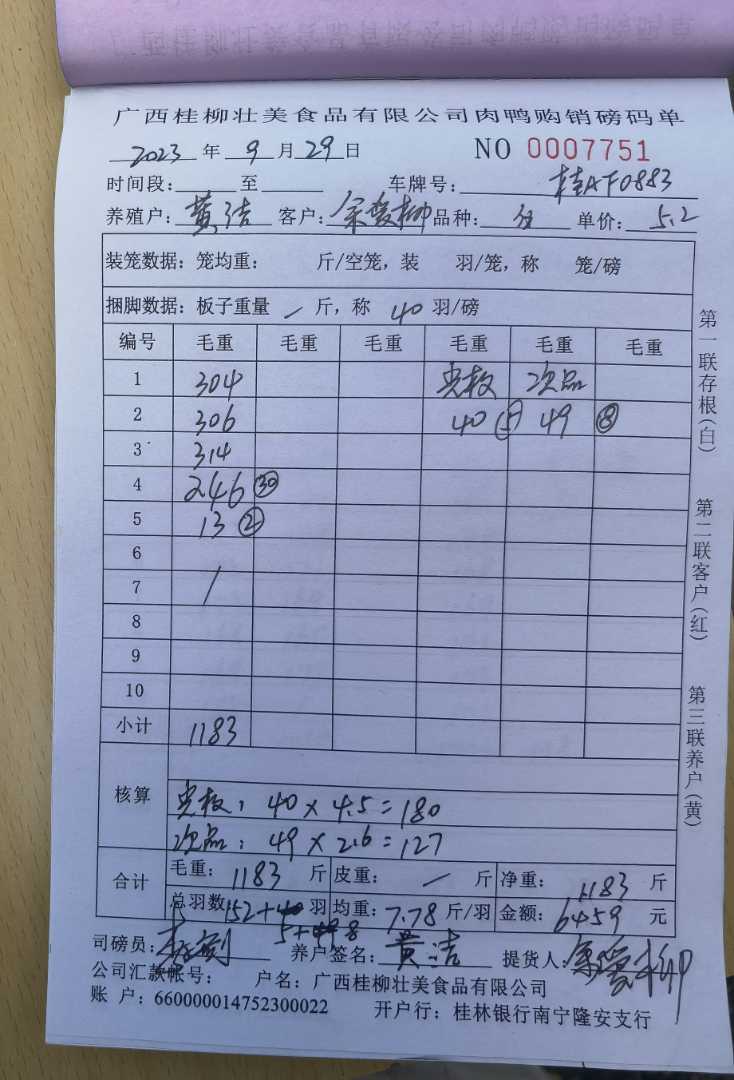 广西桂柳壮美食品有限公司肉鸭购销磅码单
2023 年 9 月 29 日 NO 0007751
时间段: 至 车牌号: 桂AF0883
养殖户: 黄洁 客户: 品种: 单价: 5.2
装笼数据: 笼均重: 斤/空笼, 装 羽/笼, 称 笼/磅
捆脚数据: 板子重量 / 斤, 称 40 羽/磅
编号 毛重 毛重 毛重 毛重 毛重 毛重
1 304 光板 次品
2 306 40 ⑤ 49 ⑧
3 314
4 246 ㉚
5 13 ②
6
7 /
8
9
10
小计 1183
核算
光板: 40 × 4.5 = 180
次品: 49 × 2.6 = 127
合计 毛重: 1183 斤 皮重: / 斤 净重: 1183 斤
总羽数 152+ 羽 均重: 7.78 斤/羽 金额: 6459 元
5+ 8
司磅员: 养户签名: 黄洁 提货人:
公司汇款帐号: 户名: 广西桂柳壮美食品有限公司
账 户: 660000014752300022 开户行: 桂林银行南宁隆安支行
第一联存根(白)
第二联客户(红)
第三联养户(黄)